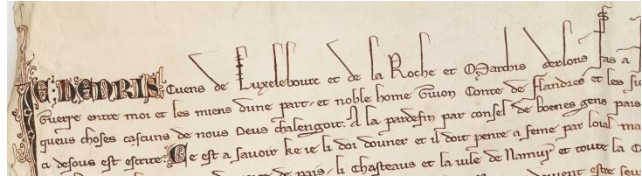 JE HENRIS Cuens de Luxelebourc et de la Roche et Marchis derlons fas a
Guerre entre moi et les miens dune part et noble home Guion Conte de flandres et les
queus choses cascuns de nous deus chalengoit. A la pardefin par consel de boenes gens pais
a desous est escrite. Ce est a savoir ke ie li doi douner et il doit penre a feme par loial
de pais li Chasteaus et la vile de Namur et toute la